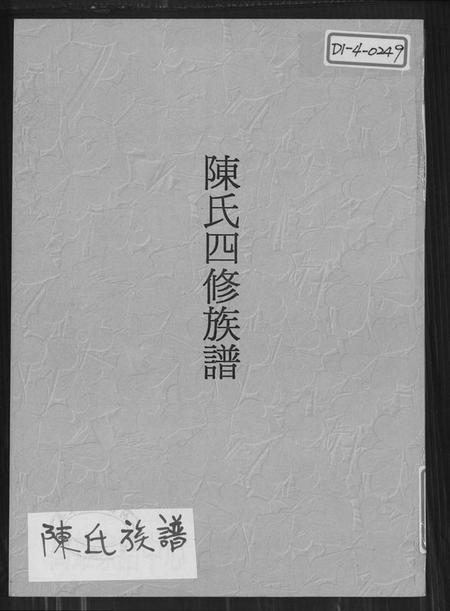 D1-4-0249
陳氏四修族譜
陳氏族譜